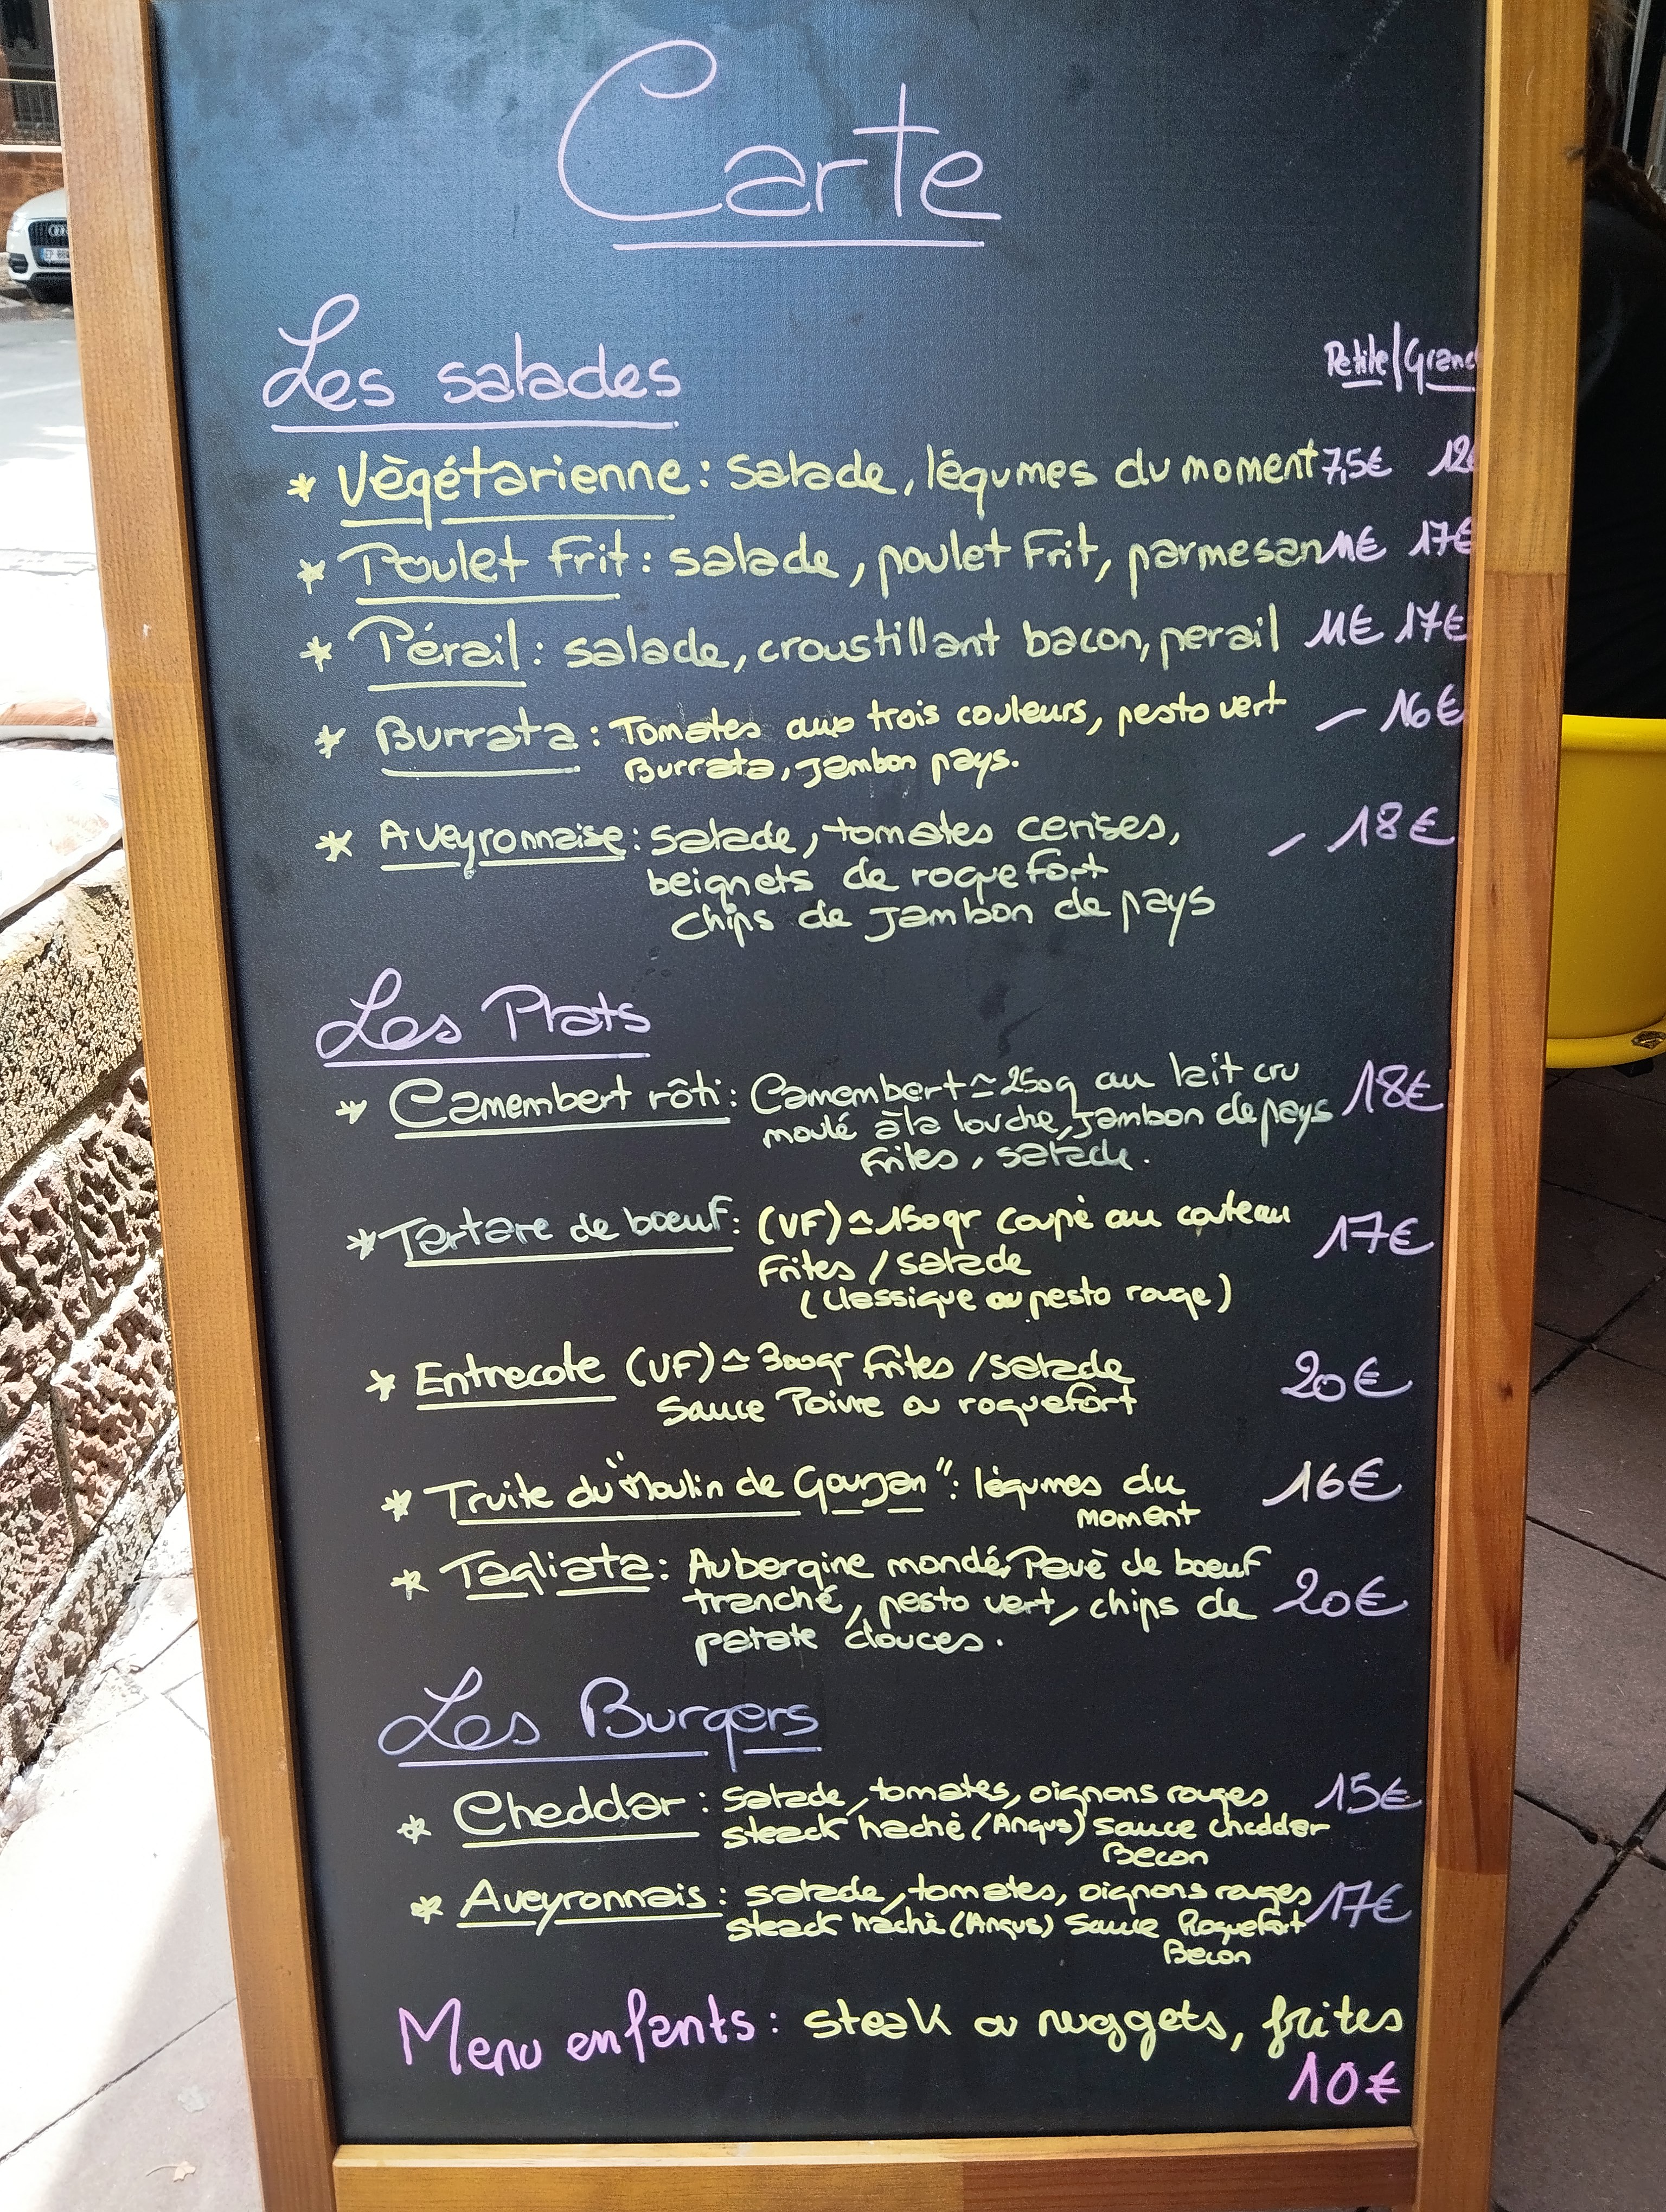 Carte
Les salades
Petite/Grand
* Vègétarienne : salade, légumes du moment 7,5€ 12€
* Poulet frit : salade, poulet frit, parmesan 11€ 17€
* Pérail : salade, croustillant bacon, perail 11€ 17€
* Burrata : Tomates aux trois couleurs, pesto vert - 16€
Burrata, Jambon pays.
* Aveyronnaise : salade, tomates cerises, - 18€
beignets de roquefort
chips de Jambon de pays
Les Plats
* Camembert rôti : Camembert ≃ 250g au lait cru 18€
moulé à la louche, Jambon de pays
Frites, salade.
* Tartare de boeuf : (VF) ≃ 150gr coupè au couteau 17€
Frites / salade
(classique ou pesto rouge)
* Entrecote (VF) ≃ 300gr Frites / salade 20€
Sauce Poivre ou roquefort
* Truite du "Moulin de Gourjan" : légumes du 16€
moment
* Tagliata : Aubergine mondé, Pavè de boeuf
tranché, pesto vert, chips de 20€
patate douces.
Les Burgers
* Cheddar : salade, tomates, oignons rouges 15€
steack hachè (Angus) sauce cheddar
Becon
* Aveyronnais : salade, tomates, oignons rouges 17€
steack hachè (Angus) sauce Roquefort
Becon
Menu enfants : steak ou nuggets, frites
10€